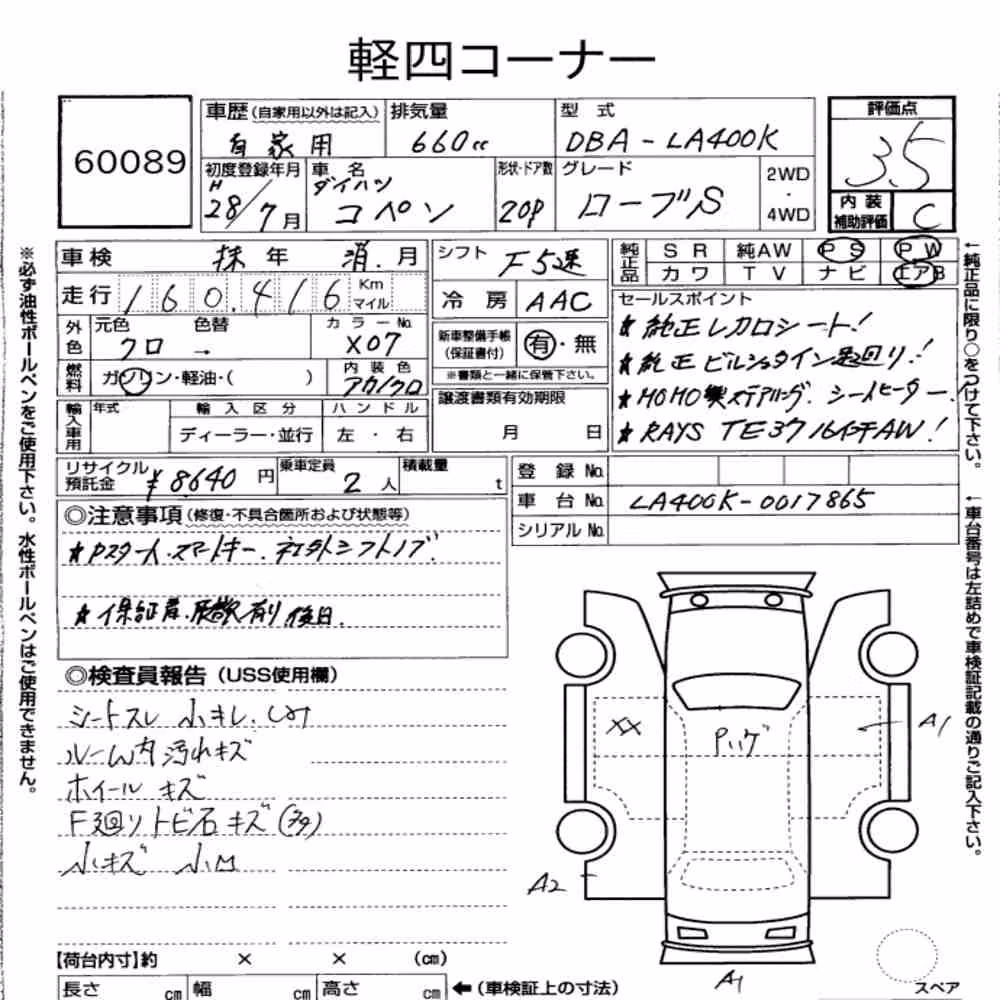 軽四コーナー
60089
車歴(自家用以外は記入) 自家用
排気量 660cc
型式 DBA-LA400K
評価点 3.5
初度登録年月 H28/7月
車名 ダイハツ コペン
形状・ドア数 20P
グレード ローブS
2WD・4WD
内装補助評価 C
車検 抹年 消.月
シフト F5速
純正品 SR 純AW PS PW
カワ TV ナビ エアB
走行 160,416 Km マイル
冷房 AAC
セールスポイント
★純正レカロシート!
★純正ビルシュタイン足廻り!
★MOMO製ステアリング. シートヒーター.
★RAYS TE37 16インチAW!
外色 元色 クロ 色替 → カラーNo. X07
新車整備手帳(保証書付) 有・無
※書類と一緒に保管下さい。
燃料 ガソリン・軽油・( )
内装色 アカ/クロ
譲渡書類有効期限 月 日
輸入車用 年式 輸入区分 ディーラー・並行 ハンドル 左・右
リサイクル預託金 ¥8640円
乗車定員 2人
積載量 t
登録No.
車台No. LA400K-0017865
シリアルNo.
◎注意事項(修復・不具合箇所および状態等)
★Pスタート.スマートキー.社外シフトノブ.
★保証書.取説有り後日.
◎検査員報告(USS使用欄)
シートスレ 小キレ.
ルーム内汚れキズ
ホイールキズ
F廻りトビ石キズ(多)
小キズ 小凹
XX
Pハゲ
A1
A2
A1
スペア
【荷台内寸】約 × × (cm)
長さ cm 幅 cm 高さ cm ←(車検証上の寸法)
※必ず油性ボールペンをご使用下さい。水性ボールペンはご使用できません。
←純正品に限り○をつけて下さい。
←車台番号は左詰めで車検証記載の通りご記入下さい。